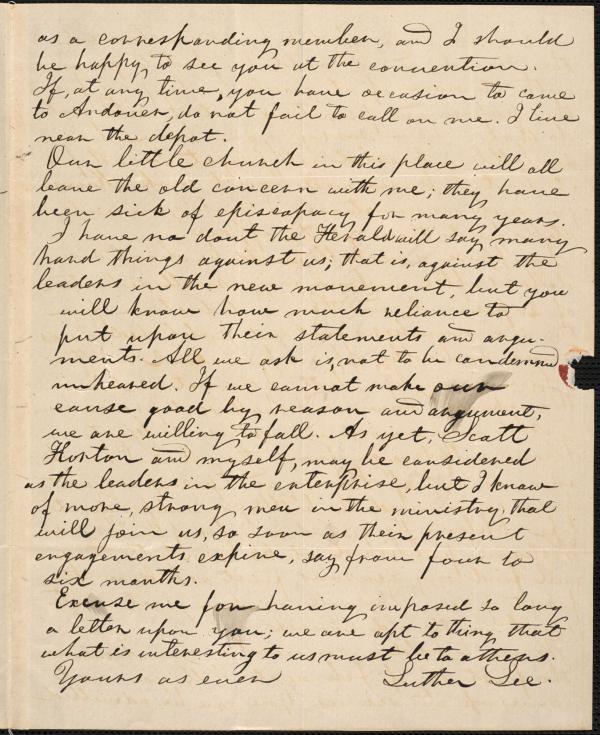 as a corresponding member, and I should
be happy to see you at the convention.
If, at any time, you have occasion to come
to Andover, do not fail to call on me. I live
near the depot.
Our little church in this place will all
leave the old concern with me; they have
been sick of episcopacy for many years.
I have no dout the Herald will say many
hard things against us; that is, against the
leaders in the new movement, but you
will know how much reliance to
put upon their statements and argu-
ments. All we ask is, not to be condemned
unheared. If we cannot make our
cause good by reason and argument,
we are willing to fall. As yet, Scott
Horton and myself, may be considered
as the leaders in the enterprise, but I know
of more, strong men in the ministry, that
will join us, so soon as their present
engagements expire, say from four to
six months.
Excuse me for having imposed so long
a letter upon you; we are apt to thing that
what is interesting to us must be to athers.
Yours as ever Luther Lee.